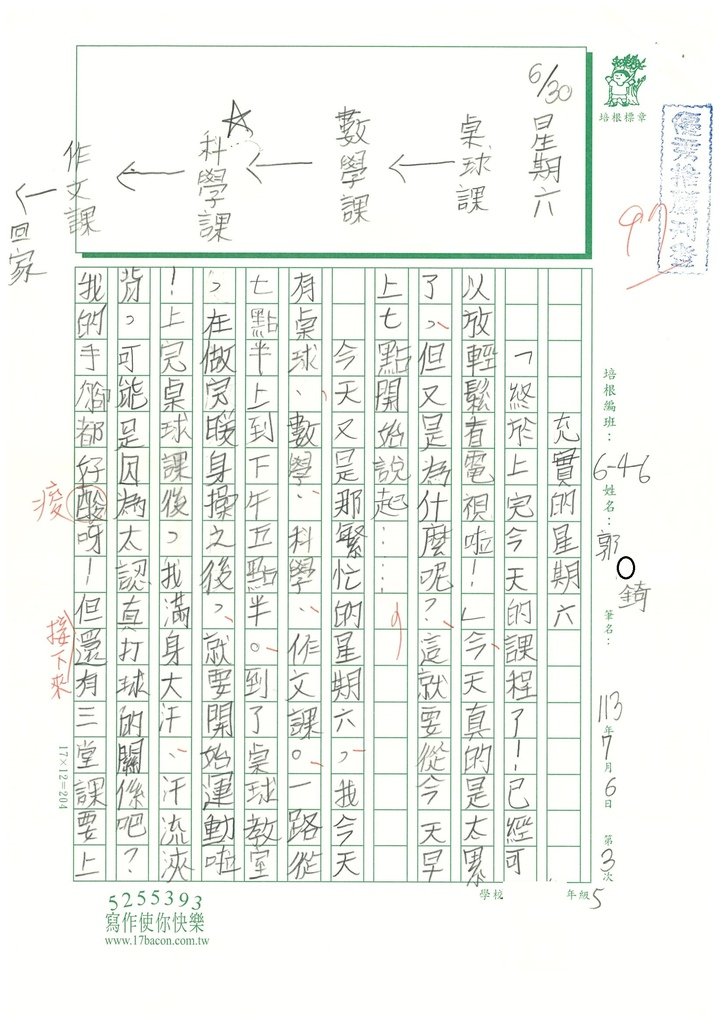 優秀推薦刊登
97
培根標章
6/30 星期六
桌球課
數學課
科學課
作文課
回家
培根編班：6-46 姓名：郭O錡 筆名： 113年7月6日 第3次
學校 年級5
充實的星期六
「終於上完今天的課程了！已經可
以放輕鬆看電視啦！」今天真的是太累
了，但又是為什麼呢？這就要從今天早
上七點開始說起……
今天又是那繁忙的星期六，我今天
有桌球、數學、科學、作文課。一路從
七點半上到下午五點半。到了桌球教室
，在做完暖身操之後，就要開始運動啦
！上完桌球課後，我滿身大汗、汗流浹
背，可能是因為太認真打球的關係吧？
我的手腳都好酸呀！但還有三堂課要上
痠
接下來
17×12=204
5255393
寫作使你快樂
www.17bacon.com.tw